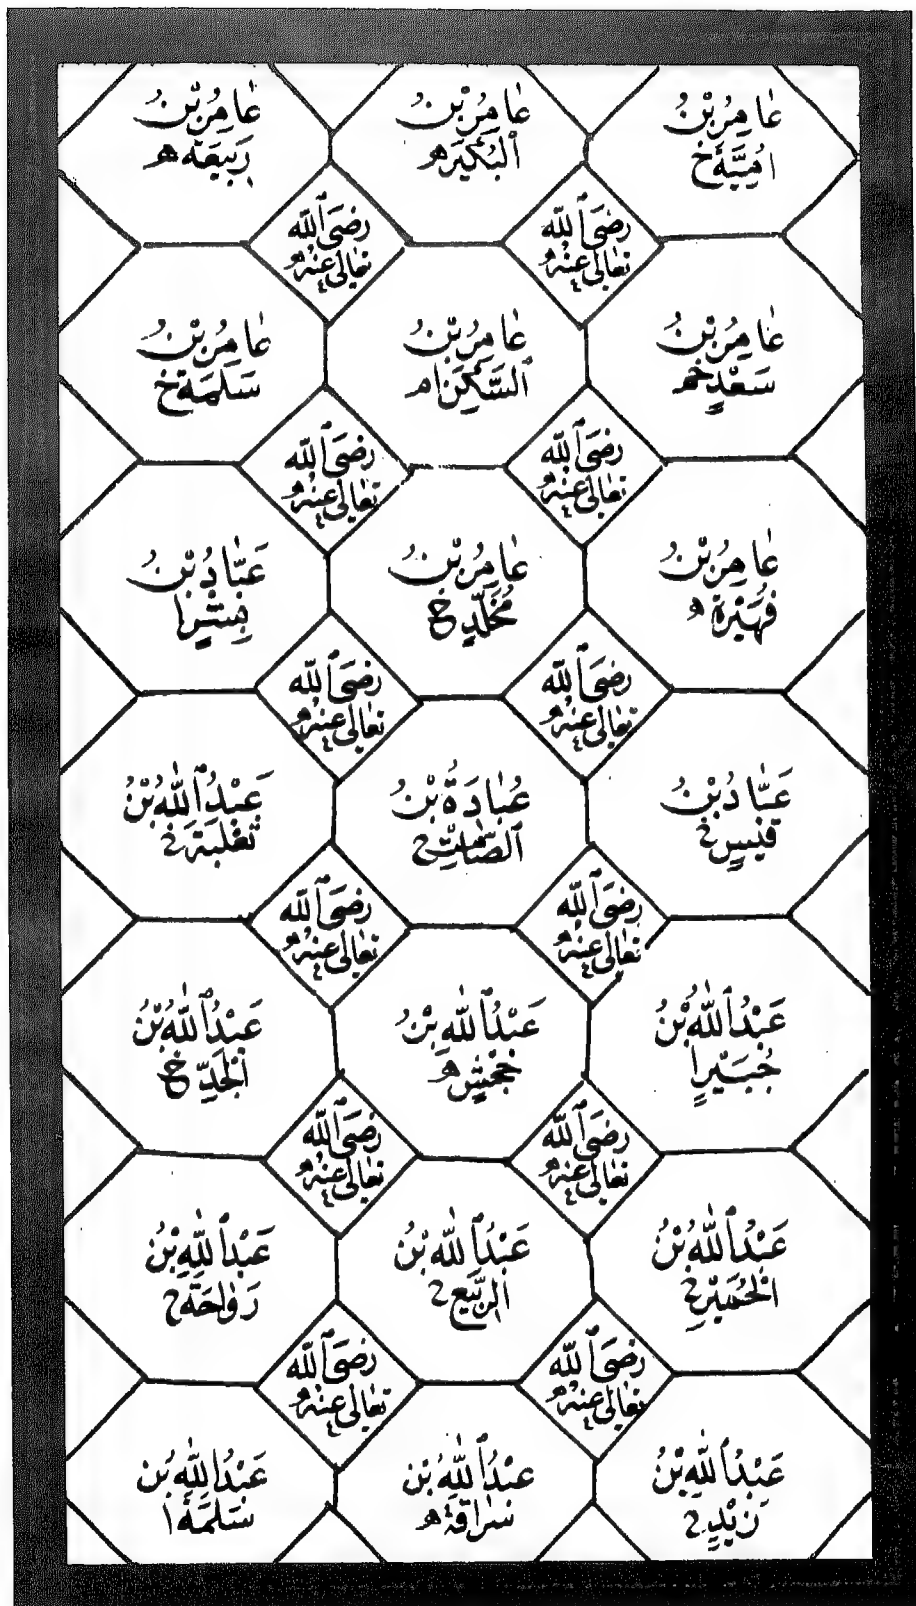 عَامِرُ بْنُ
اُمَيَّةَ خ
عَامِرُ بْنُ
الْبُكَيْرِ هـ
عَامِرُ بْنُ
رَبِيعَةَ هـ
رَضِىَ اللّٰه
تَعَالٰى عَنْهُ
رَضِىَ اللّٰه
تَعَالٰى عَنْهُ
عَامِرُ بْنُ
سَعْدٍ
عَامِرُ بْنُ
السَّكَنِ
عَامِرُ بْنُ
سَلَمَةَ خ
رَضِىَ اللّٰه
تَعَالٰى عَنْهُ
رَضِىَ اللّٰه
تَعَالٰى عَنْهُ
عَامِرُ بْنُ
فُهَيْرَةَ هـ
عَامِرُ بْنُ
مُخَلَّدٍ خ
عَبَّادُ بْنُ
بِشْرٍ ا
رَضِىَ اللّٰه
تَعَالٰى عَنْهُ
رَضِىَ اللّٰه
تَعَالٰى عَنْهُ
عَبَّادُ بْنُ
قَيْسٍ خ
عُبَادَةُ بْنُ
الصَّامِتِ خ
عَبْدُ اللّٰهِ بْنُ
ثَعْلَبَةَ خ
رَضِىَ اللّٰه
تَعَالٰى عَنْهُ
رَضِىَ اللّٰه
تَعَالٰى عَنْهُ
عَبْدُ اللّٰهِ بْنُ
جُبَيْرٍ ا
عَبْدُ اللّٰهِ بْنُ
جَحْشٍ هـ
عَبْدُ اللّٰهِ بْنُ
الْجَدِّ خ
رَضِىَ اللّٰه
تَعَالٰى عَنْهُ
رَضِىَ اللّٰه
تَعَالٰى عَنْهُ
عَبْدُ اللّٰهِ بْنُ
الْحُمَيِّرِ خ
عَبْدُ اللّٰهِ بْنُ
الرَّبِيعِ خ
عَبْدُ اللّٰهِ بْنُ
رَوَاحَةَ خ
رَضِىَ اللّٰه
تَعَالٰى عَنْهُ
رَضِىَ اللّٰه
تَعَالٰى عَنْهُ
عَبْدُ اللّٰهِ بْنُ
زَيْدٍ خ
عَبْدُ اللّٰهِ بْنُ
سُرَاقَةَ هـ
عَبْدُ اللّٰهِ بْنُ
سَلَمَةَ ا